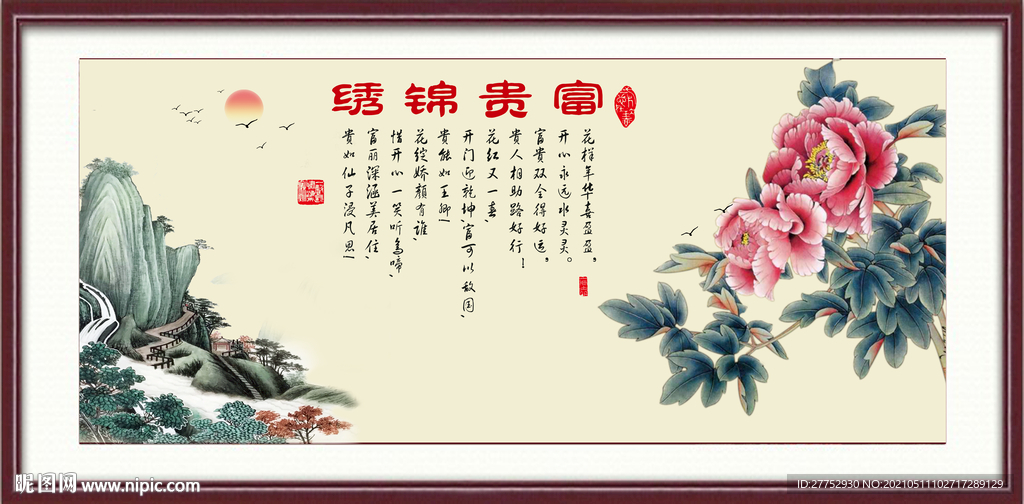 富贵锦绣
花样年华喜盈盈，
开心永远水灵灵。
富贵双全得好运，
贵人相助路好行！
花红又一春，
开门迎乾坤，富可以敌国，
贵能如王卿！
花绽娇颜有谁，
惜开心一笑听鸟啼，
富丽深涵美居住，
贵如仙子浸凡思！
昵图网 www.nipic.com
ID:27752930 NO:20210511102717289129